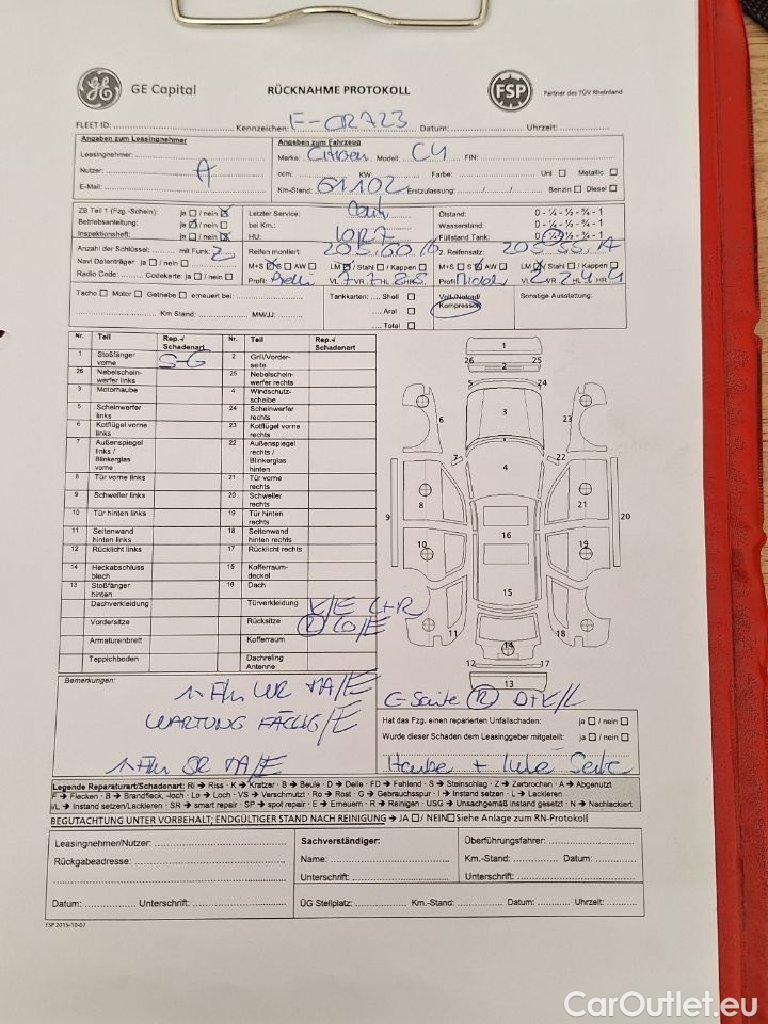 GE Capital RÜCKNAHME PROTOKOLL FSP Partner des TÜV Rheinland
FLEET ID: Kennzeichen: Datum: Uhrzeit:
Angaben zum Leasingnehmer
Leasingnehmer:
Nutzer: A
E-Mail:
Angaben zum Fahrzeug
Marke: Citroen Modell: C4 FIN:
ccm: KW Farbe: Uni Metallic
Km-Stand: 61102 Erstzulassung: / / Benzin Diesel
ZB Teil 1 (Fzg.-Schein): ja / nein
Betriebsanleitung: ja / nein
Inspektionsheft: ja / nein
Letzter Service:
bei Km.:
HU:
Ölstand: 0 - ¼ - ½ - ¾ - 1
Wasserstand: 0 - ¼ - ½ - ¾ - 1
Füllstand Tank: 0
Anzahl der Schlüssel: mit Funk: 2
Navi Datenträger: ja / nein
Radio Code: Codekarte: ja / nein
Reifen montiert:
M+S S AW LM / Stahl / Kappen
Profil: VL 7 VR 7 HL HR
2. Reifensatz:
M+S S AW LM / Stahl / Kappen
Profil VL VR HL HR
Tacho Motor Getriebe erneuert bei:
Km Stand: MM/JJ:
Tankkarten: Shell
Aral
Total
Voll-/Notrad/
Kompressor
Sonstige Ausstattung:
Nr. Teil Rep.-/ Schadenart Nr. Teil Rep.-/ Schadenart
1 Stoßfänger vorne S-G 2 Grill/Vorderseite
26 Nebelscheinwerfer links 25 Nebelscheinwerfer rechts
3 Motorhaube 4 Windschutzscheibe
5 Scheinwerfer links 24 Scheinwerfer rechts
6 Kotflügel vorne links 23 Kotflügel vorne rechts
7 Außenspiegel links / Blinkerglas vorne 22 Außenspiegel rechts / Blinkerglas hinten
8 Tür vorne links 21 Tür vorne rechts
9 Schweller links 20 Schweller rechts
10 Tür hinten links 19 Tür hinten rechts
11 Seitenwand hinten links 18 Seitenwand hinten rechts
12 Rücklicht links 17 Rücklicht rechts
14 Heckabschlussblech 15 Kofferraumdeckel
13 Stoßfänger hinten 16 Dach
Dachverkleidung Türverkleidung K/E L+R
Vordersitze Rücksitze
Armaturenbrett Kofferraum
Teppichboden Dachreling Antenne
1
25 2 26
5 24
3
6 23
7 22
4
8 21
9 20
16
10 19
15
11 18
14
12 17
13
Bemerkungen:
WARTUNG FÄLLIG/E
Hat das Fzg. einen reparierten Unfallschaden: ja / nein
Wurde dieser Schaden dem Leasinggeber mitgeteilt: ja / nein
Haube + linke Seite
Legende Reparaturart/Schadenart: RI → Riss · K → Kratzer · B → Beule · D → Delle · FD → Fehlend · S → Steinschlag · Z → Zerbrochen · A → Abgenutzt
F → Flecken · B → Brandfleck, -loch · Lo → Loch · VS → Verschmutzt · Ro → Rost · G → Gebrauchsspur · I → Instand setzen · L → Lackieren
I/L → Instand setzen/Lackieren · SR → smart repair · SP → spot repair · E → Erneuern · R → Reinigen · USG → Unsachgemäß instand gesetzt · N → Nachlackiert
BEGUTACHTUNG UNTER VORBEHALT; ENDGÜLTIGER STAND NACH REINIGUNG → JA / NEIN Siehe Anlage zum RN-Protokoll
Leasingnehmer/Nutzer:
Rückgabeadresse:
Datum: Unterschrift:
Sachverständiger:
Name:
Unterschrift:
Überführungsfahrer:
Km.-Stand: Datum:
Unterschrift:
ÜG Stellplatz: Km.-Stand: Datum: Uhrzeit:
FSP 2015-10-07
CarOutlet.eu